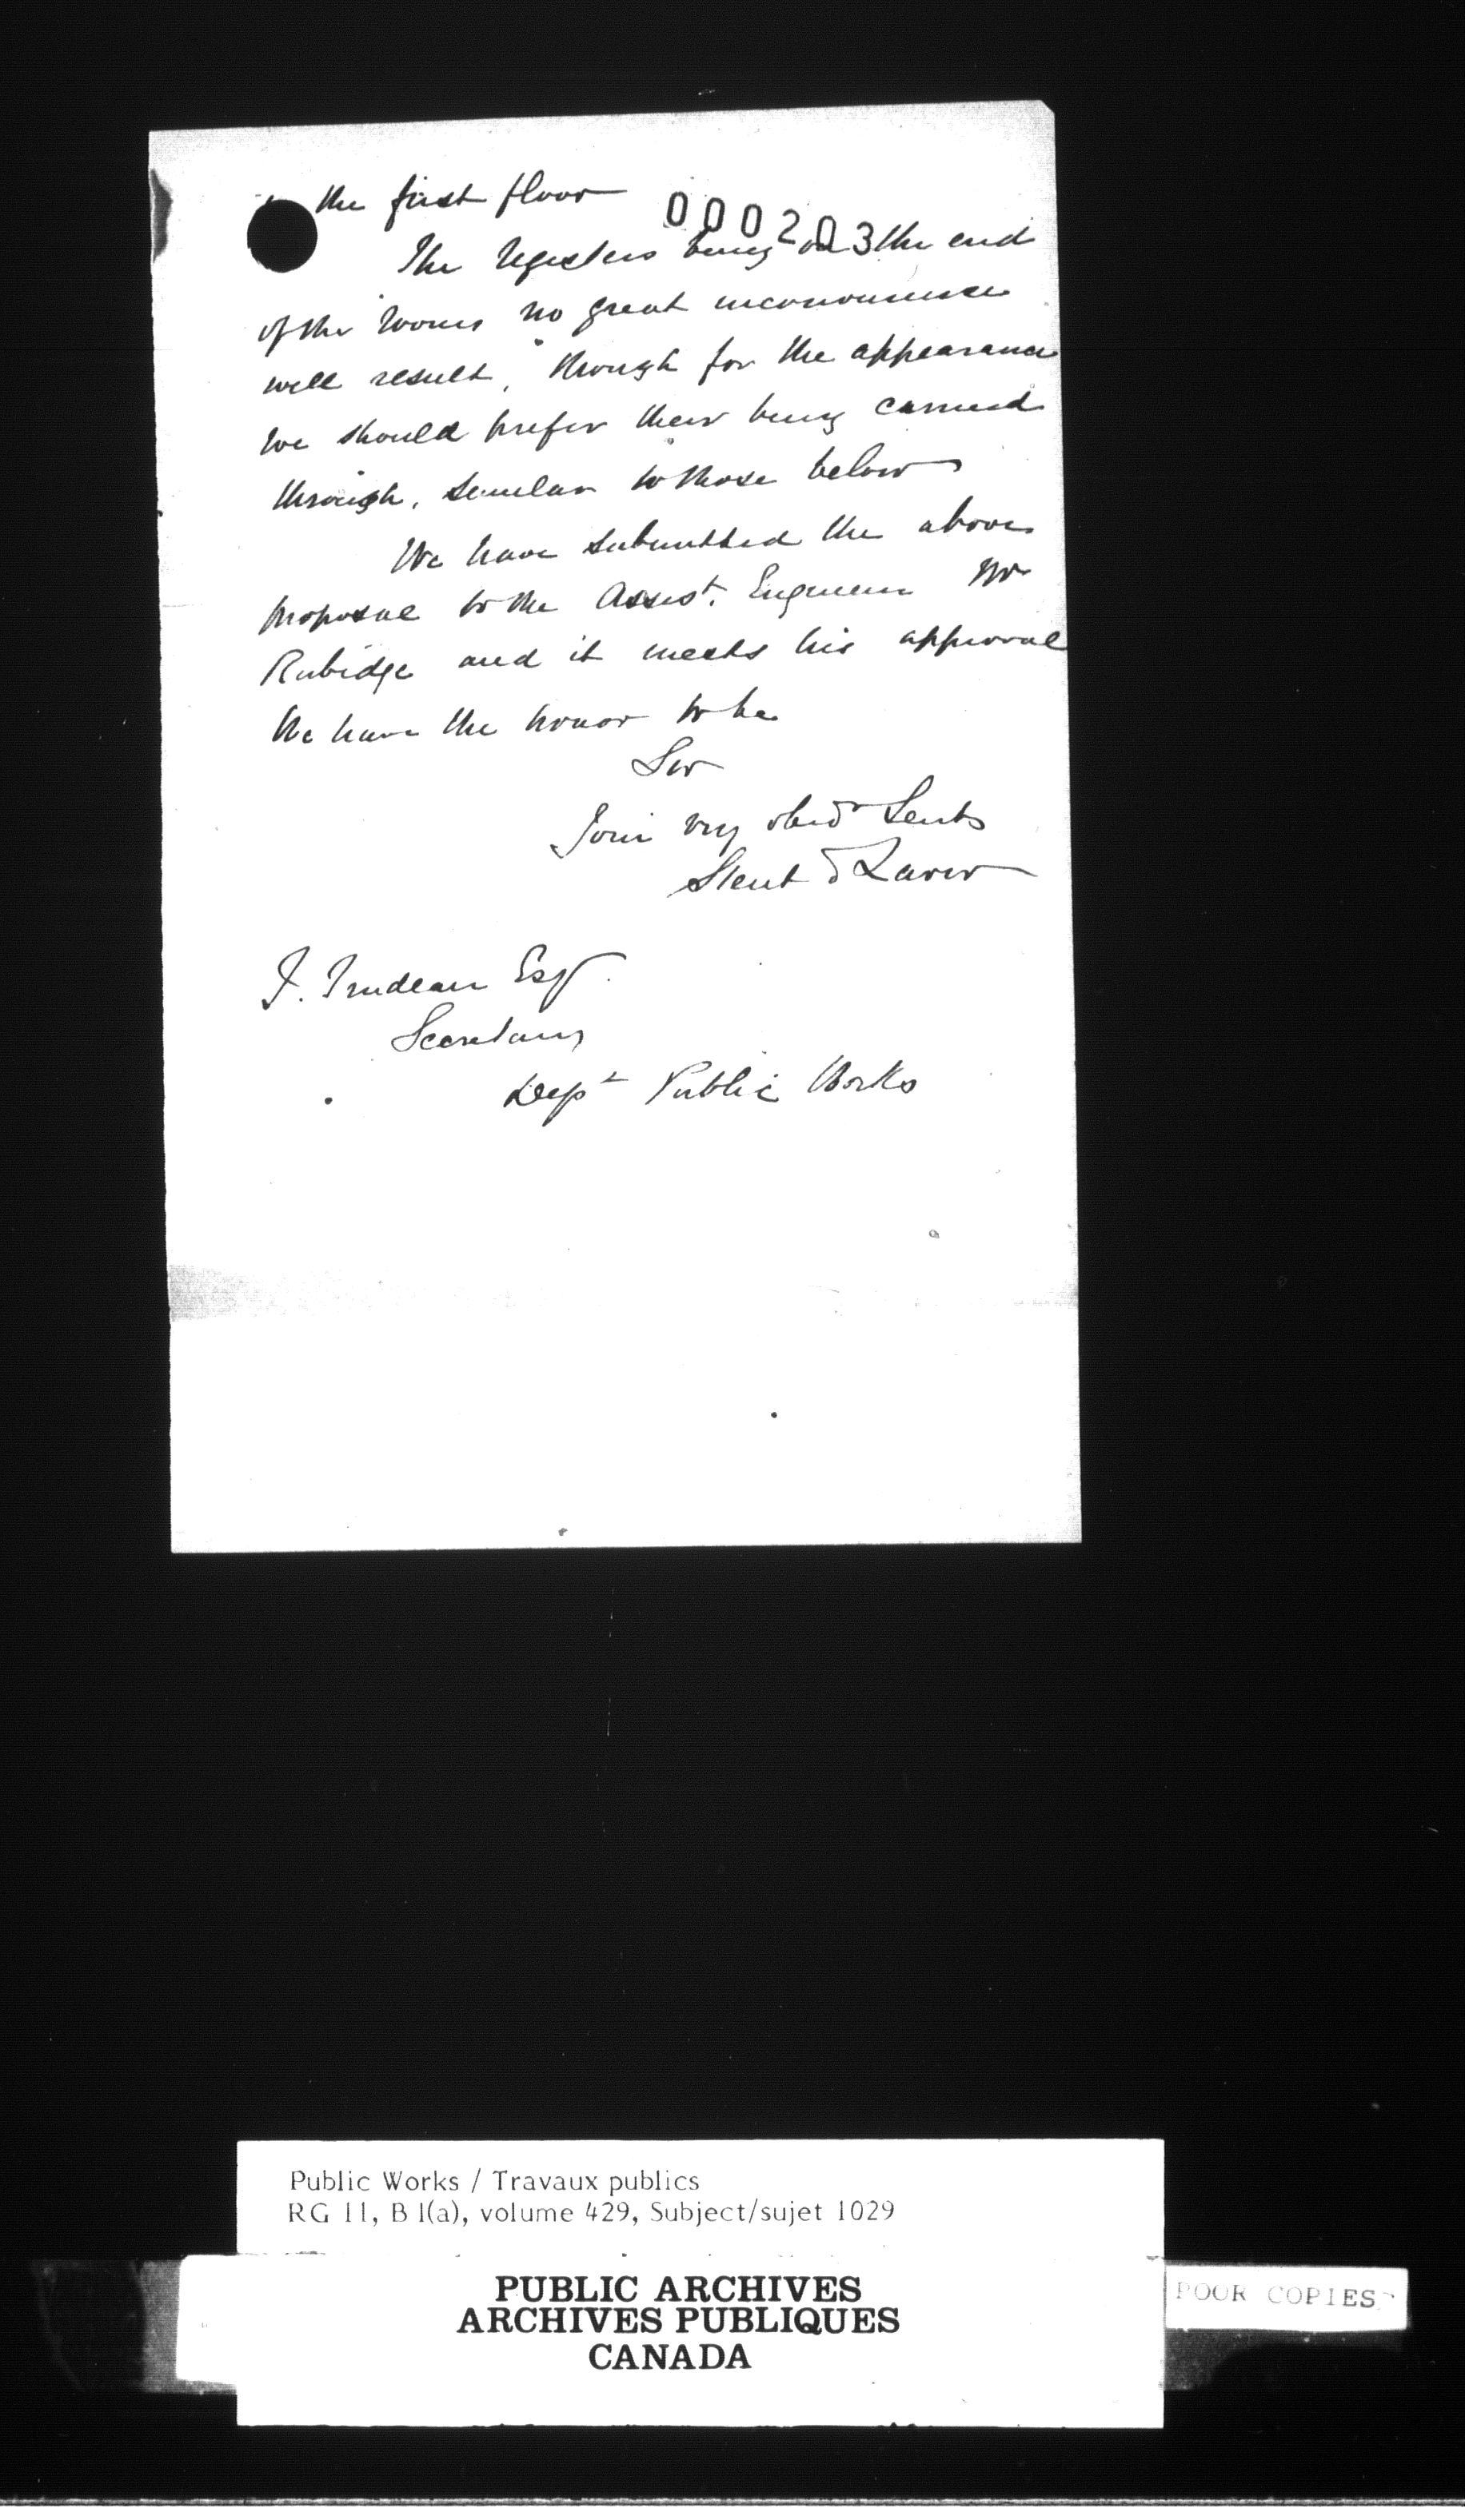 the first floor
000203
The registers being on the end
of the rooms no great inconvenience
will result, though for the appearance
we should prefer their being carried
through, similar to those below
We have submitted the above
proposal to the Assist. Engineer Mr
Rubidge and it meets his approval
We have the honor to be
Sir
Your very obedt Servts
Stent & Laver
T. Trudeau Esqr.
Secretary
Dept Public Works
Public Works / Travaux publics
RG 11, B 1(a), volume 429, Subject/sujet 1029
PUBLIC ARCHIVES
ARCHIVES PUBLIQUES
CANADA
POOR COPIES